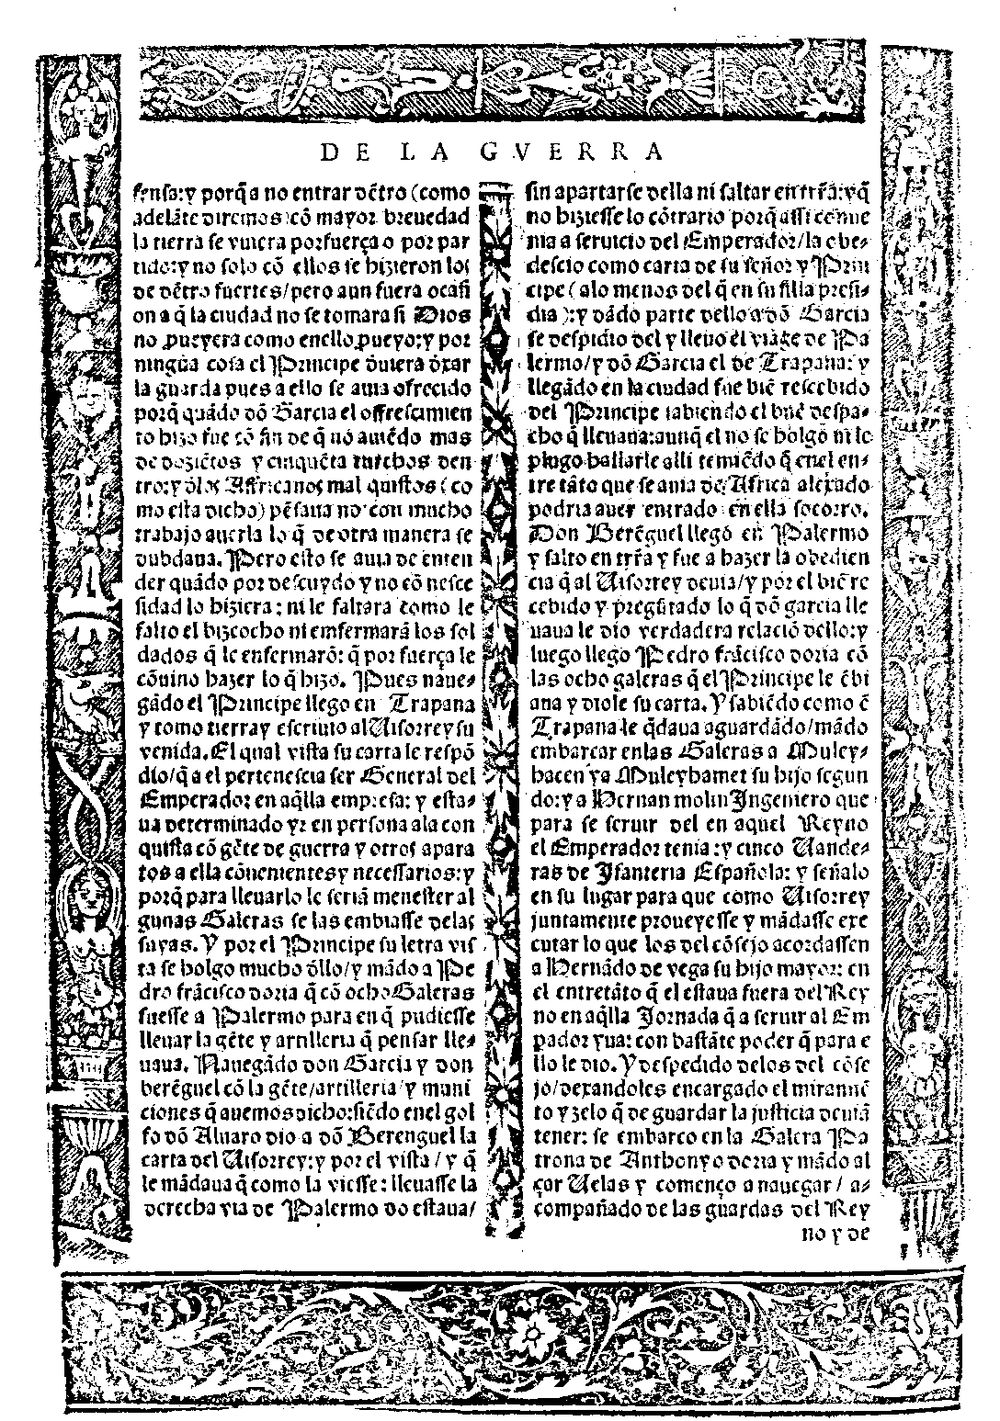 DE LA GVERRA
fensa:y porq̃ a no entrar dẽtro (como
adelãte diremos) cõ mayor breuedad
la tierra se vuiera por fuerça o por par
tido:y no solo cõ ellos se hizieron los
de dẽtro fuertes/pero aun fuera ocasi
on a q̃ la ciudad no se tomara si Dios
no proueyera como enello proueyo:y por
ningũa cosa el Principe d̃uiera dxar
la guarda pues a ello se auia ofrecido
porq̃ quãdo dõ Garcia el offrescimien
to hizo fue cõ fin de q̃ nõ auiẽdo mas
de doziẽtos y cinquẽta turchos den
tro:y d̃los Affricanos mal quistos (co
mo esta dicho) pẽsaua no con mucho
trabajo auerla lo q̃ de otra manera se
dubdaua. Pero esto se auia de enten
der quãdo por descuydo y no cõ nesce
sidad lo hiziera: ni le faltara como le
falto el bizcocho ni enfermarã los sol
dados q̃ le enfermarõ: q̃ por fuerça le
cõuino hazer lo q̃ hizo. Pues naue-
gãdo el Principe llego en Trapana
y tomo tierra y escriuio al Uisorrey su
venida. El qual vista su carta le respõ
dio/q̃ a el pertenescia ser General del
Emperador en aq̃lla empresa: y esta-
ua determinado yr en persona ala con
quista cõ gẽte de guerra y otros apara
tos a ella cõuenientes y necessarios:y
porq̃ para lleuarlo le seriã menester al
gunas Galeras se las embiasse delas
suyas. Y por el Principe su letra vis
ta se holgo mucho d̃llo/y mãdo a Pe
dro frãcisco doria q̃ cõ ocho Galeras
fuesse a Palermo para en q̃ pudiesse
lleuar la gẽte y artilleria q̃ pensar lle-
uaua. Nauegãdo don Garcia y don
berẽguel cõ la gẽte/artilleria y muni
ciones q̃ auemos dicho:siẽdo enel gol
fo dõ Aluaro dio a dõ Berenguel la
carta del Uisorrey:y por el vista/y q̃
le mãdaua q̃ como la viesse: lleuasse la
derecha via de Palermo do estaua/
sin apartarse della ni saltar en trr̃a:y q̃
no hiziesse lo cõtrario porq̃ assi conue
nia a seruicio del Emperador/la obe-
descio como carta de su señor y Prin
cipe (alo menos del q̃ en su silla presi-
dia):y dãdo parte dello a dõ Garcia
se despidio del y lleuo el viage de Pa
lermo/y dõ Garcia el de Trapana: y
llegãdo en la ciudad fue biẽ rescebido
del Principe sabiẽdo el buẽ despa-
cho q̃ lleuaua:aunq̃ el no se holgo ni le
plugo hallarle alli temiẽdo q̃ enel en-
tre tãto que se auia de Africa alexado
podria auer entrado en ella socorro.
Don Berẽguel llego en Palermo
y salto en trr̃a y fue a hazer la obedien
cia q̃ al Uisorrey deuia/y por el biẽ re
cebido y pregũtado lo q̃ dõ garcia lle
uaua le dio verdadera relaciõ dello:y
luego llego Pedro frãcisco doria cõ
las ocho galeras q̃ el Principe le ẽbi
aua y diole su carta. Y sabiẽdo como ẽ
Trapana le q̃daua aguardãdo/mãdo
embarcar enlas Galeras a Muley-
hacen y a Muleyhamet su hijo segun
do:y a Hernan molin Ingeniero que
para se seruir del en aquel Reyno
el Emperador tenia:y cinco Uande-
ras de Jfanteria Española: y señalo
en su lugar para que como Uisorrey
juntamente proueyesse y mãdasse exe
cutar lo que los del cõsejo acordassen
a Hernãdo de vega su hijo mayor: en
el entretãto q̃ el estaua fuera del Rey
no en aq̃lla Jornada q̃ a seruir al Em
pador yua: con bastãte poder q̃ para e
llo le dio. Y despedido delos del cõse
jo/dexandoles encargado el miramiẽ
to y zelo q̃ de guardar la justicia deuiã
tener: se embarco en la Galera Pa
trona de Anthonyo doria y mãdo al
çar Uelas y començo a nauegar/ a-
compañado de las guardas del Rey
no y de